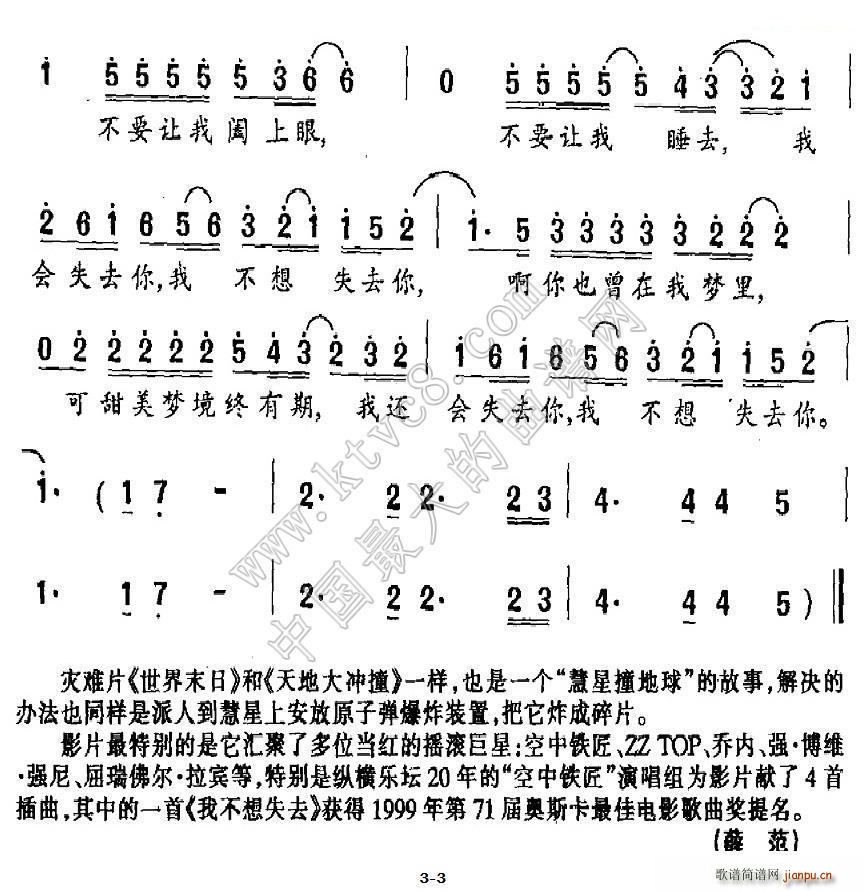 1 5 5 5 5 5 3 6 6 | 0 5 5 5 5 5 4 3 3 2 1
不要让我阖上眼, 不要让我 睡去, 我
2 6 1 6 5 6 3 2 1 1 5 2 | 1· 5 3 3 3 3 3 2 2 2
会失去你,我 不想 失去你, 啊你也曾在我梦里,
0 2 2 2 2 2 5 4 3 2 3 2 | 1 6 1 6 5 6 3 2 1 1 5 2
可甜美梦境终有期, 我还 会失去你,我 不想 失去你。
1· (1 7 - | 2· 2 2· 2 3 | 4· 4 4 5 |
1· 1 7 - | 2· 2 2· 2 3 | 4· 4 4 5 ) ‖
灾难片《世界末日》和《天地大冲撞》一样,也是一个“慧星撞地球”的故事,解决的
办法也同样是派人到慧星上安放原子弹爆炸装置,把它炸成碎片。
影片最特别的是它汇聚了多位当红的摇滚巨星:空中铁匠、ZZ TOP、乔内、强·博维
·强尼、屈瑞佛尔·拉宾等,特别是纵横乐坛20年的“空中铁匠”演唱组为影片献了4首
插曲,其中的一首《我不想失去》获得1999年第71届奥斯卡最佳电影歌曲奖提名。
(薛 范)
3-3
歌谱简谱网
jianpu.cn
www.ktvc8.com
中国最大的曲谱网